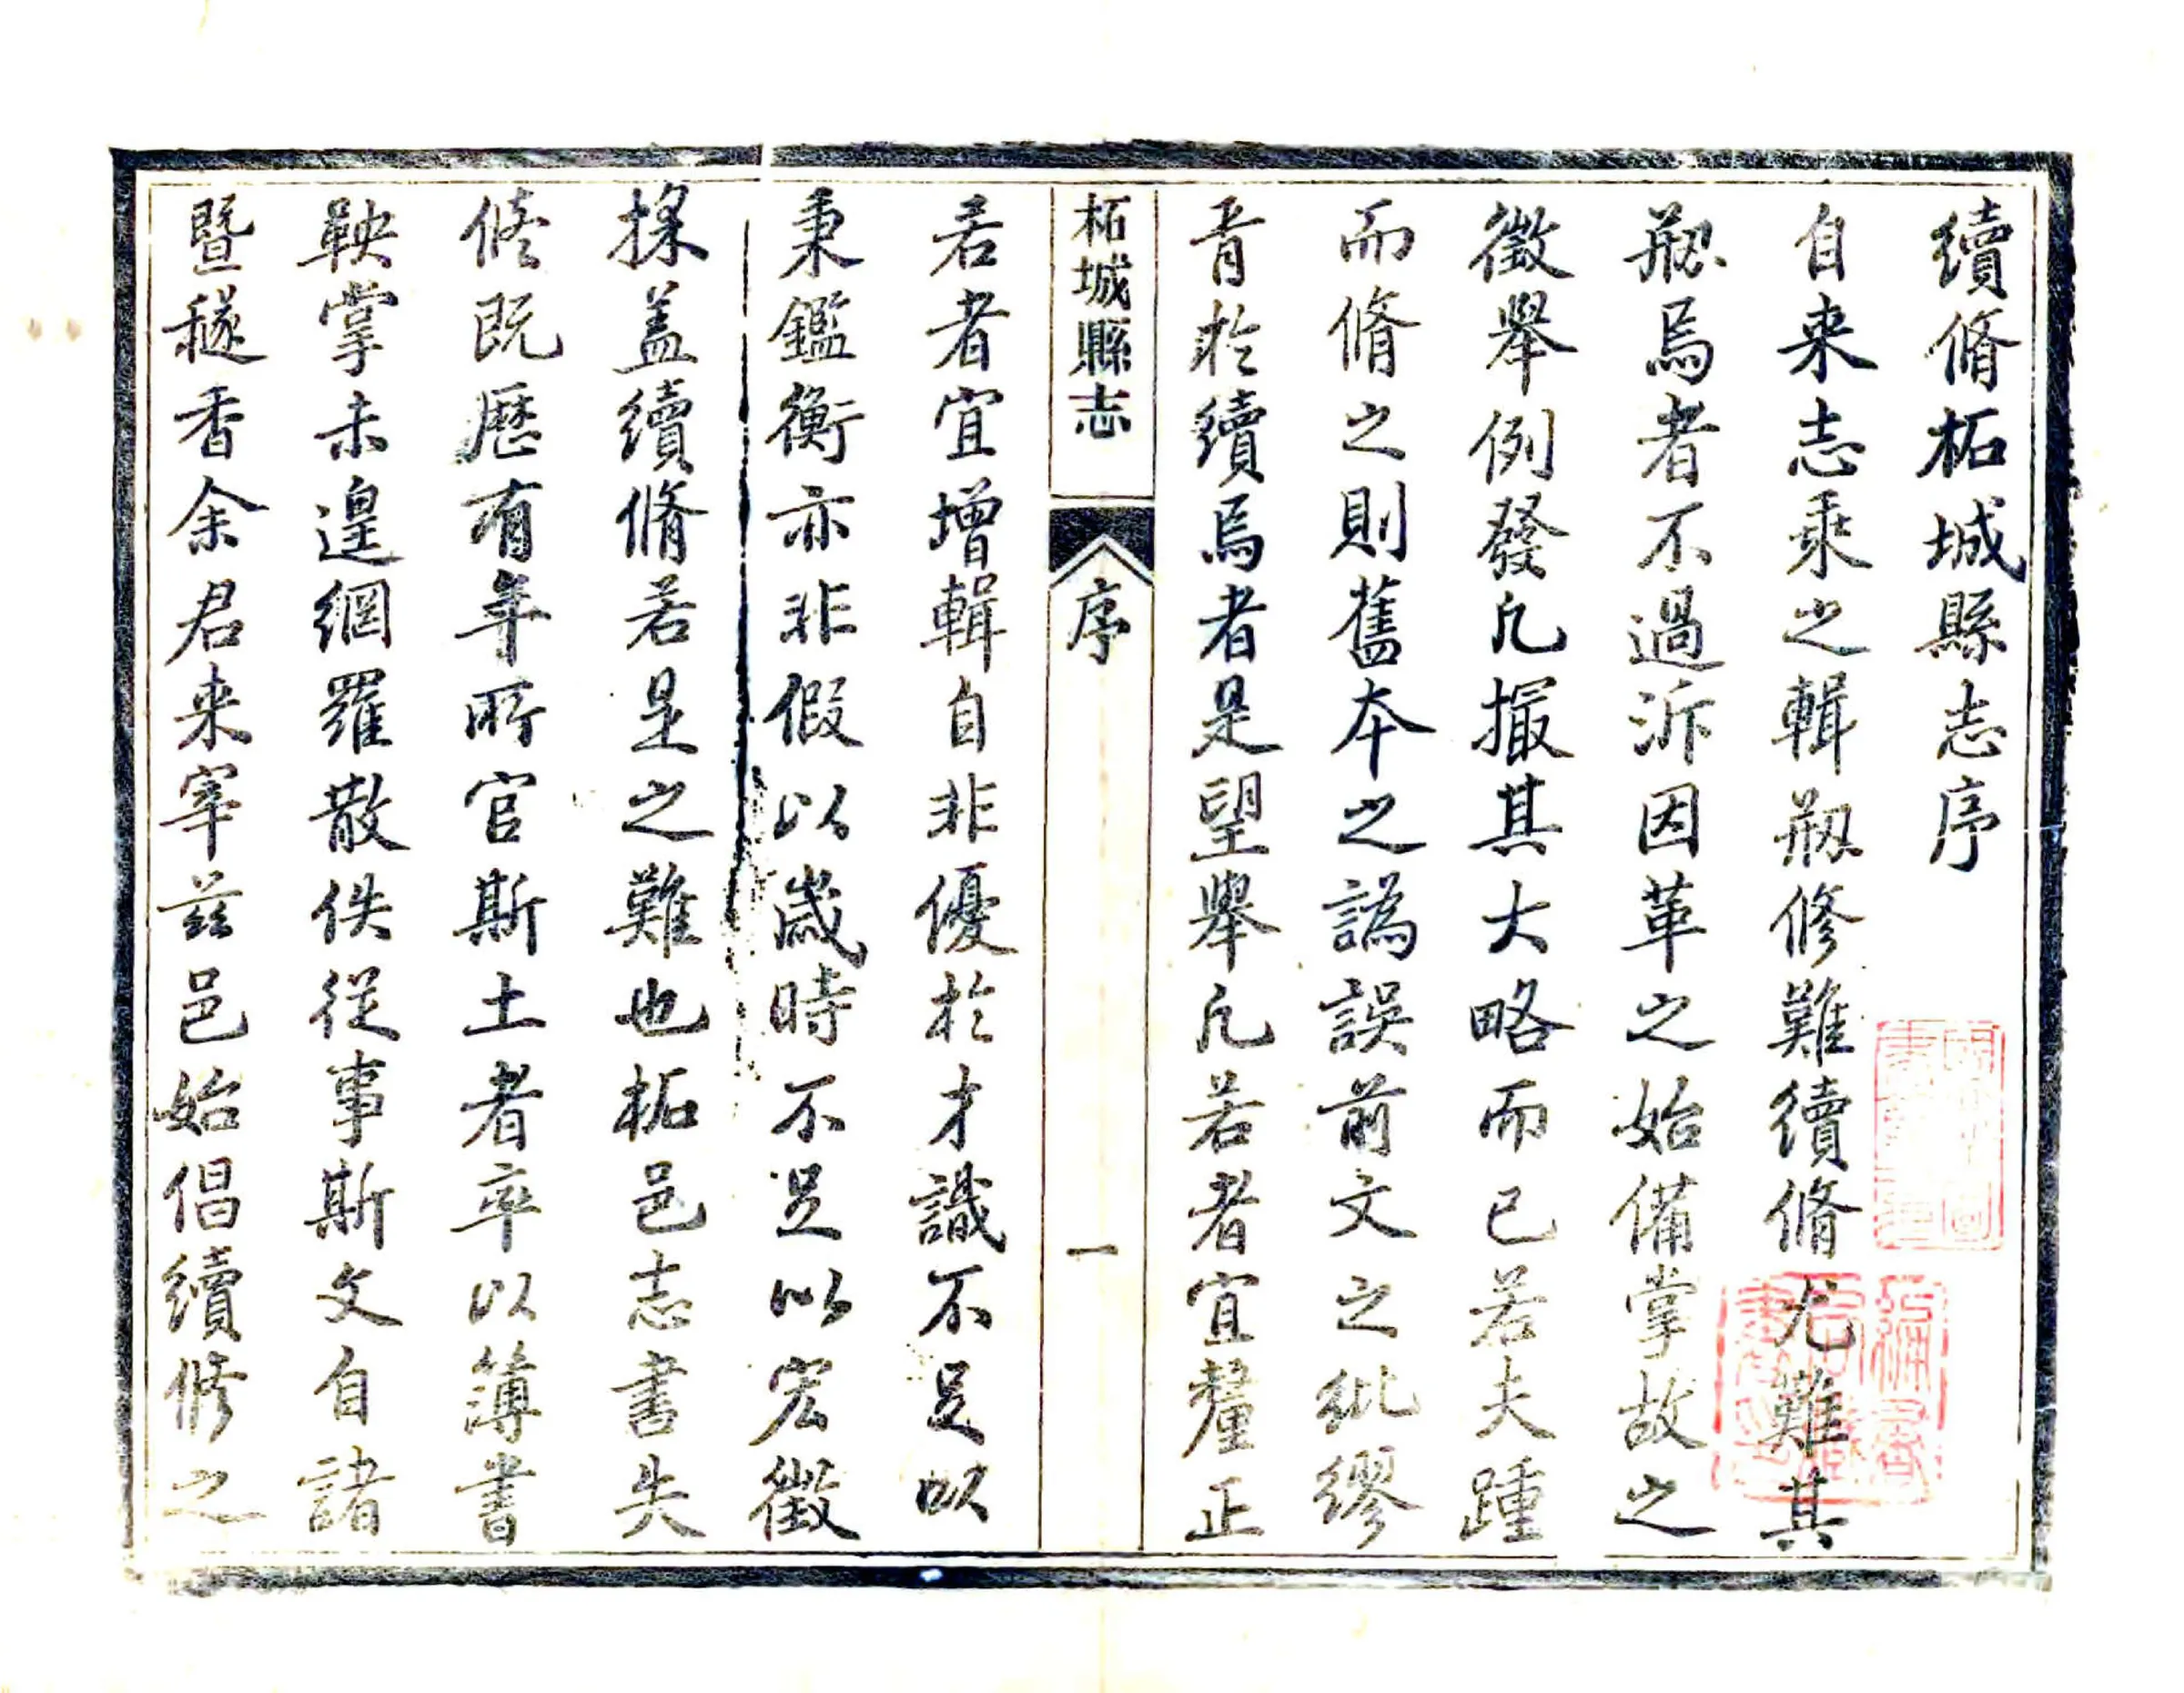 續脩柘城縣志序
自来志乘之輯刱修難續脩尤難其
刱焉者不過泝因革之始備掌故之
徵舉例發凡撮其大略而已若夫踵
而脩之則舊本之譌誤前文之紕繆
胥於續焉者是望舉凡若者宜釐正
柘城縣志
序
一
若者宜增輯自非優於才識不足以
秉鑑衡亦非假以歲時不足以宏徵
採盖續脩若是之難也柘邑志書失
修既歷有年所官斯土者率以簿書
鞅掌未遑網羅散佚從事斯文自諸
暨穟香余君来宰兹邑始倡續修之